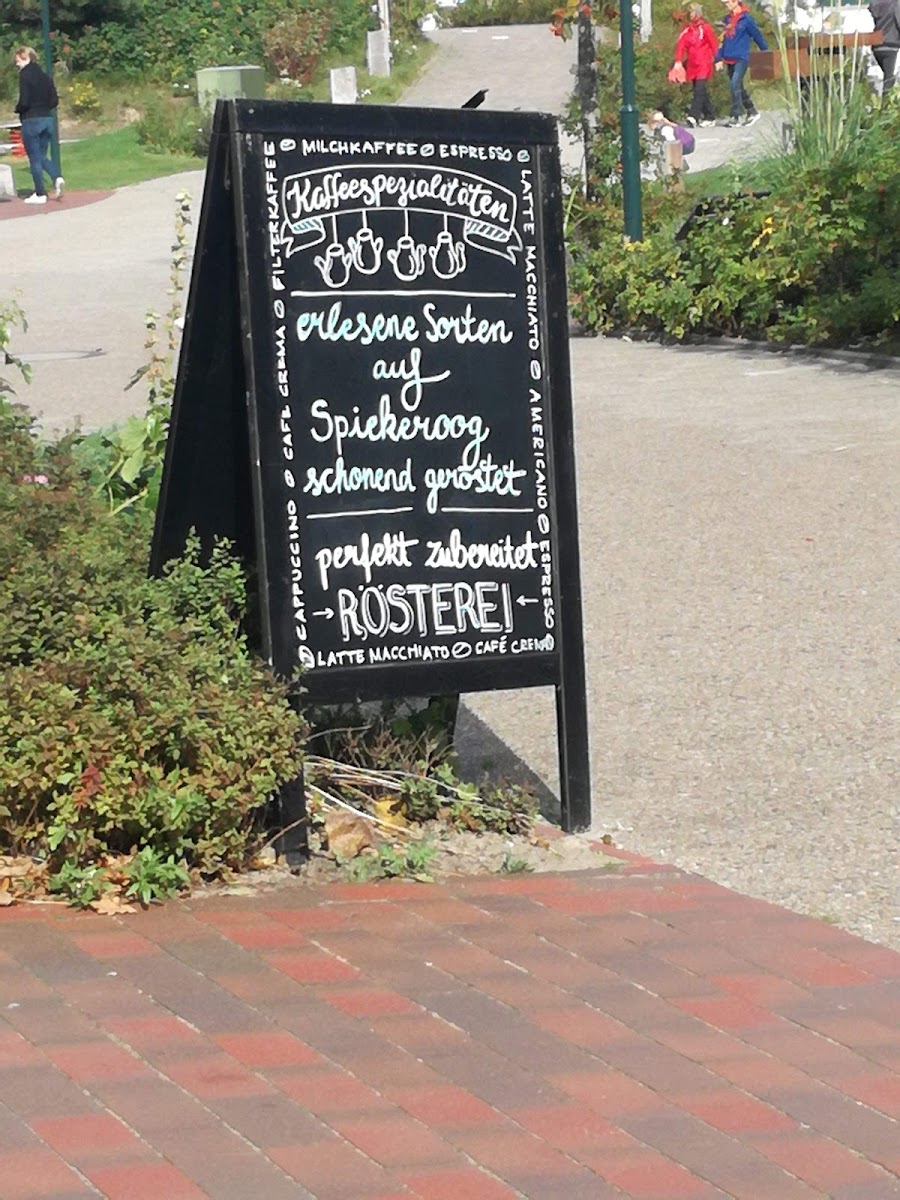 MILCHKAFFEE ESPRESSO
LATTE MACCHIATO AMERICANO ESPRESSO
CAPPUCCINO CAFÉ CREMA FILTERKAFFEE
Kaffeespezialitäten
erlesene Sorten
auf
Spiekeroog
schonend geröstet
perfekt zubereitet
→ RÖSTEREI ←
LATTE MACCHIATO CAFÉ CREMA